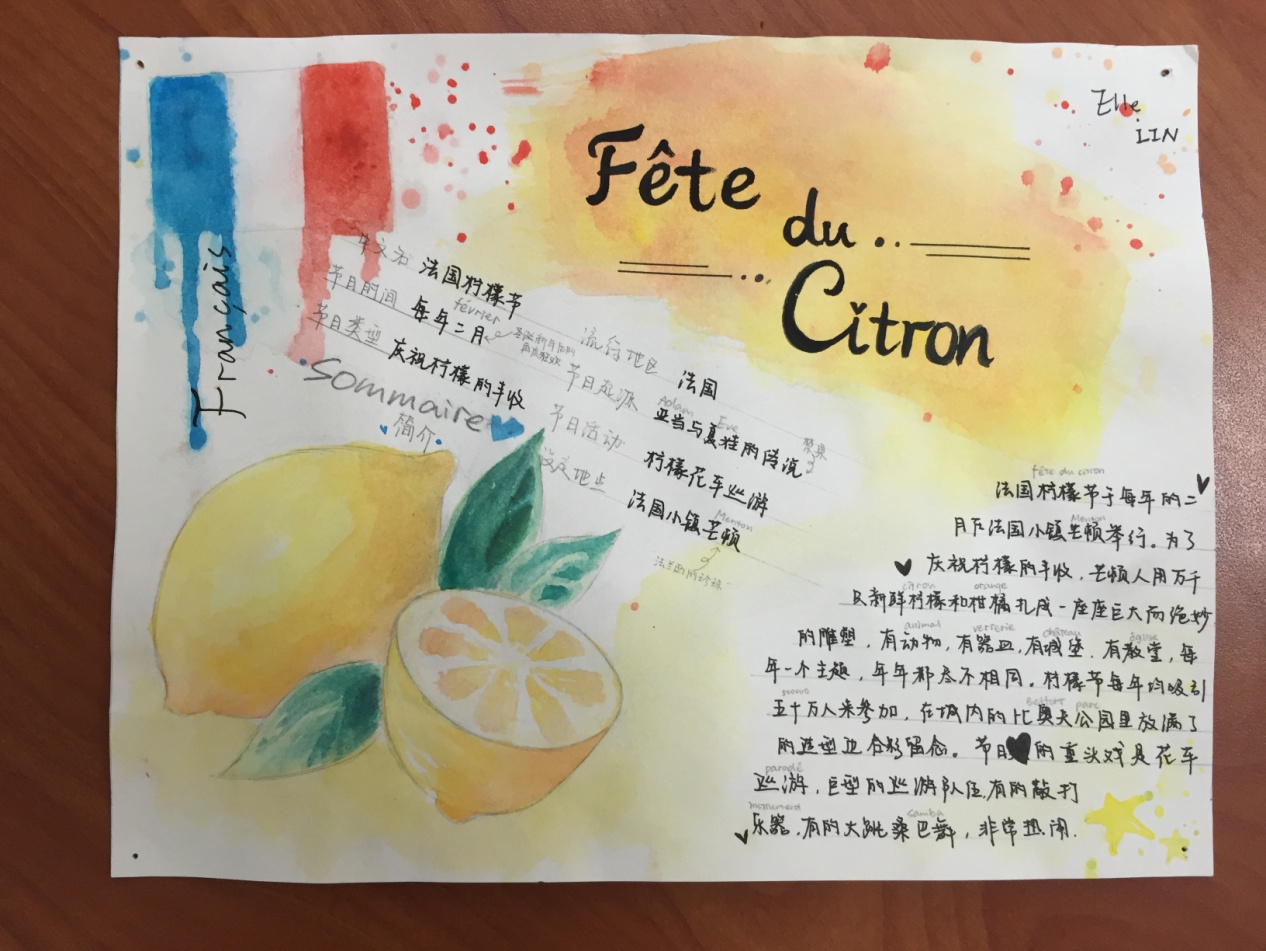 Elle
LIN
Fête
du
Citron
Français
中文名 法国柠檬节
节日时间 每年二月
février
节日类型 庆祝柠檬的丰收
流行地区 法国
节日起源 亚当与夏娃的传说
Adam Eve
禁果
节日活动 柠檬花车巡游
地点 法国小镇芒顿
Menton
Sommaire
简介
fête du citron
法国柠檬节于每年的二
Menton
月下法国小镇芒顿举行。为了
庆祝柠檬的丰收，芒顿人用万千
citron orange
只新鲜柠檬和柑橘扎成一座座巨大而绝妙
animal verrerie château église
的雕塑，有动物，有器皿，有城堡，有教堂，每
年一个主题，年年都各不相同。柠檬节每年均吸引
五十万人来参加，在城内的比奥夫公园里放满了
parc
的造型边合影留念。节日的重头戏是花车
parade
巡游，巨型的巡游队伍，有的敲打
samba
乐器，有的大跳桑巴舞，非常热闹.